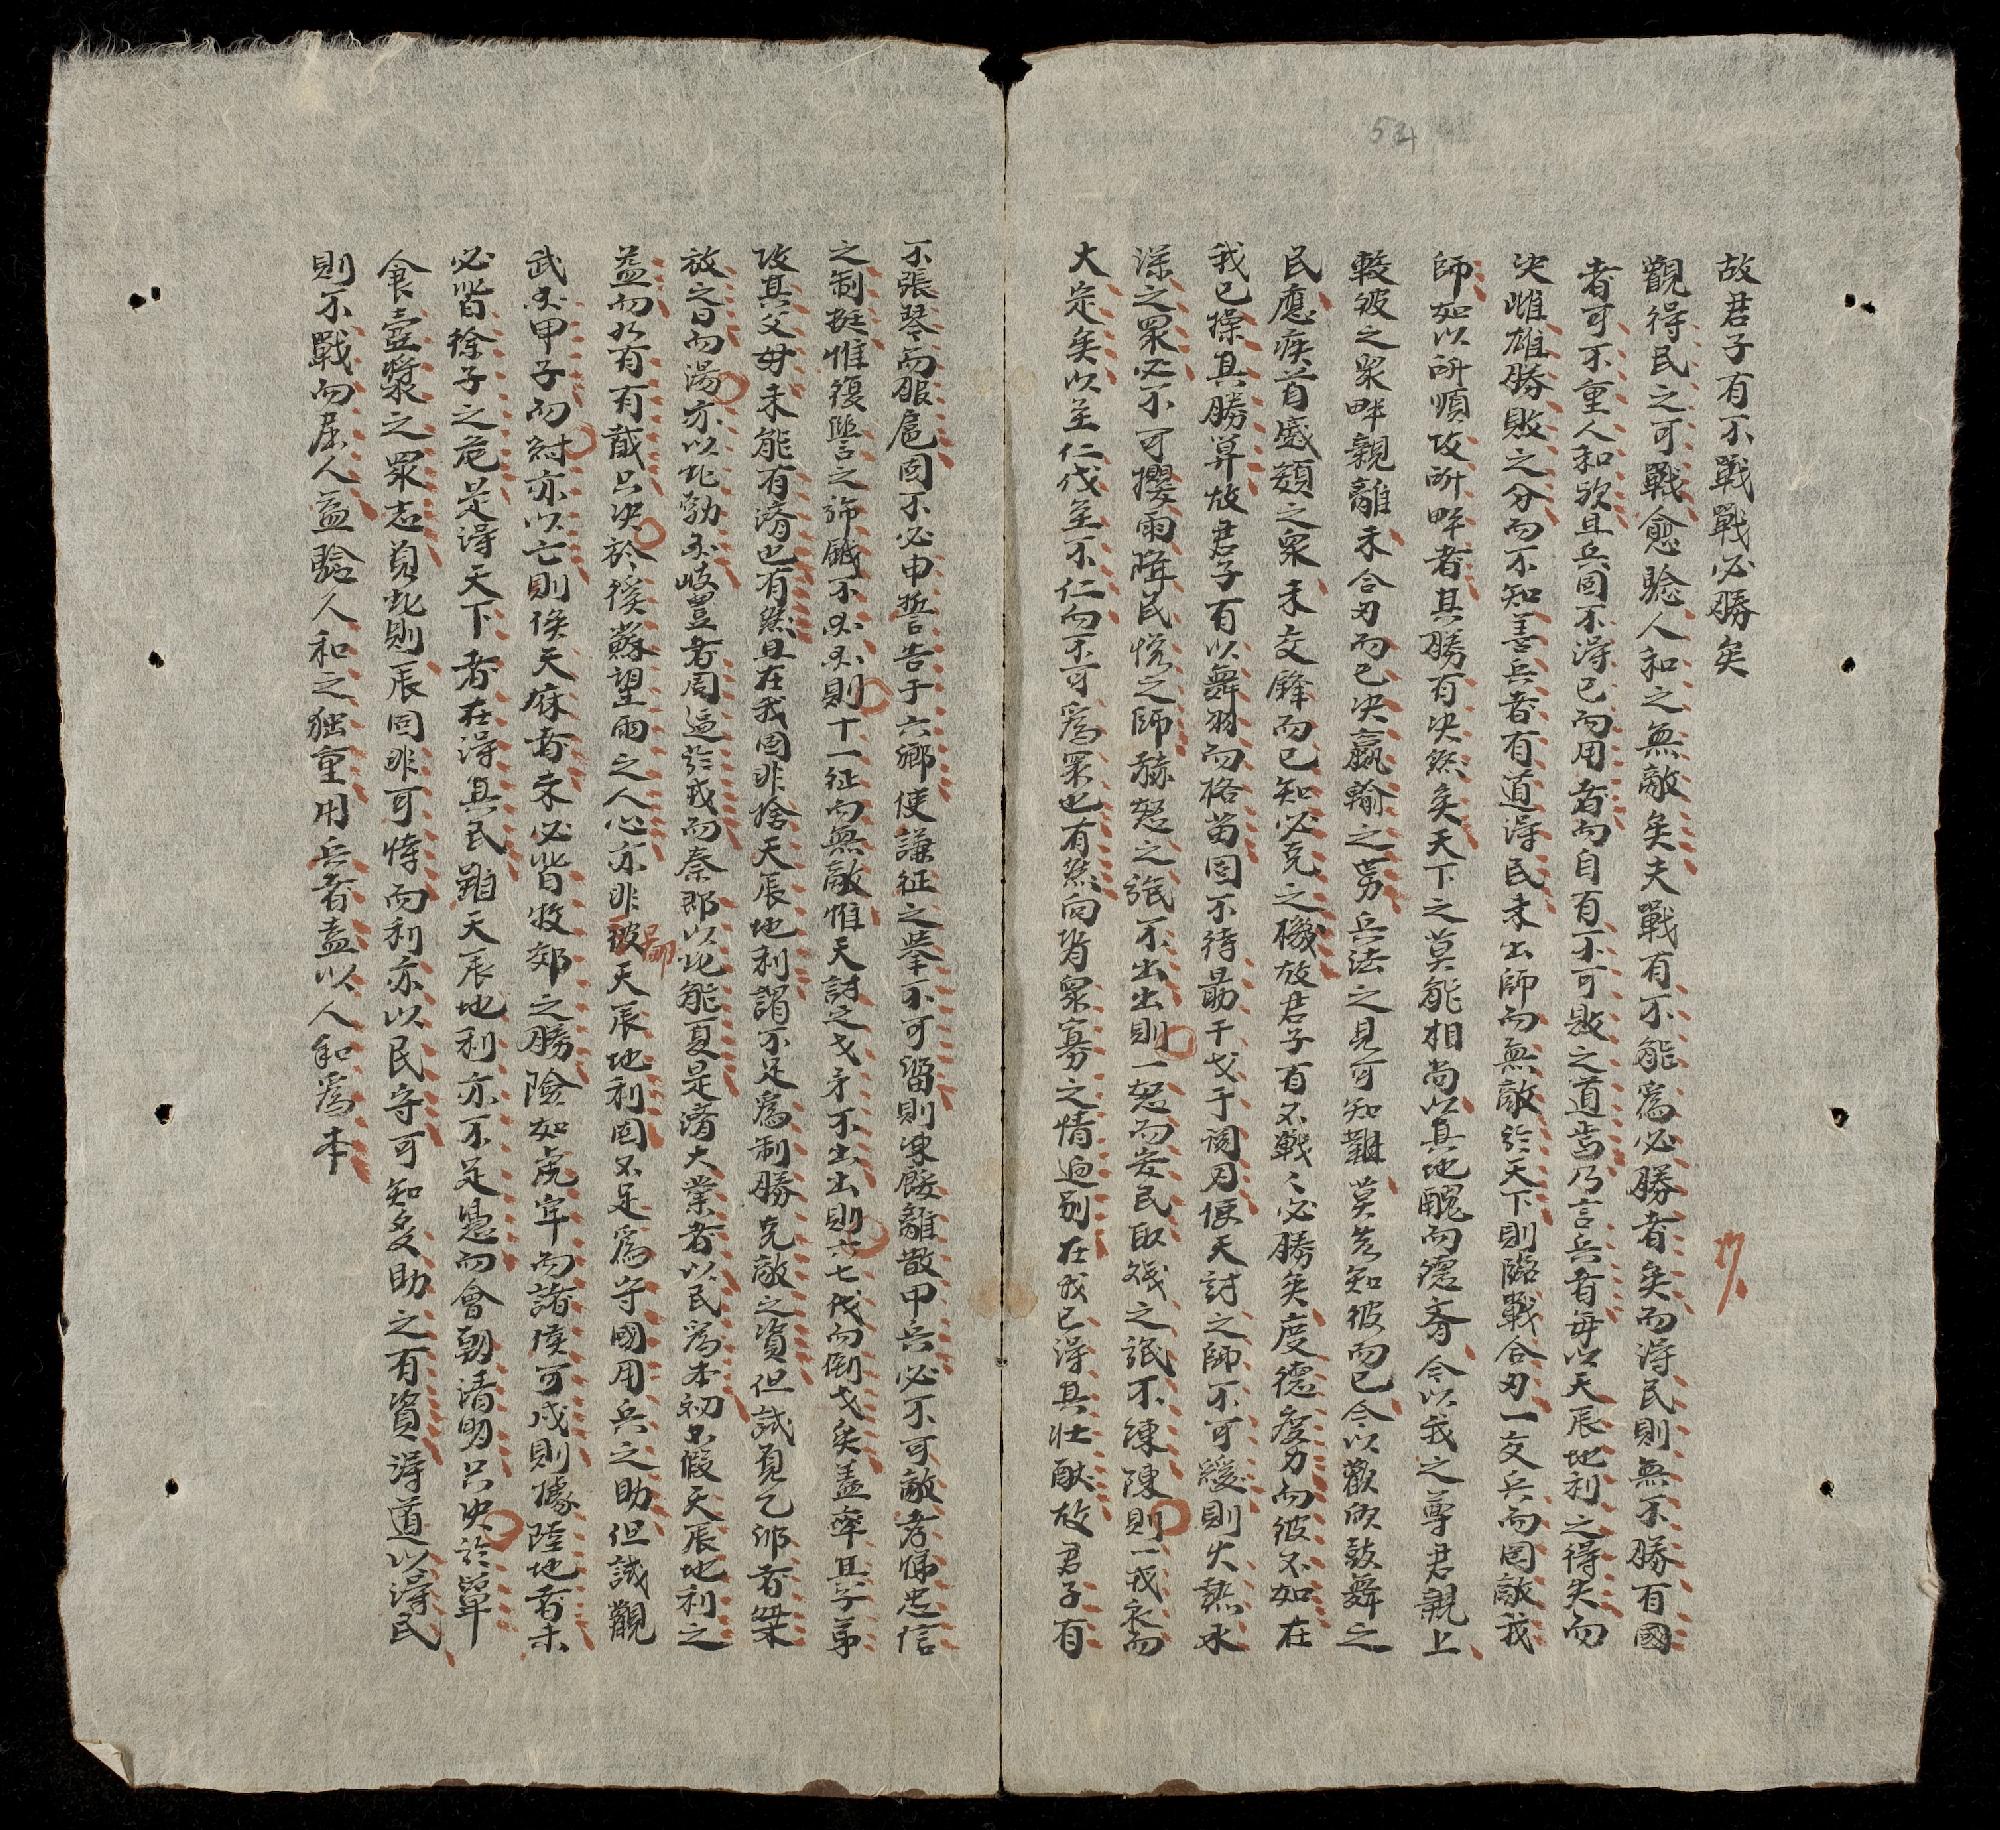 54
故君子有不戰戰必勝矣
觀得民之可戰愈驗人和之無敵矣夫戰有不能爲必勝者矣而得民則無不勝有國
者可不重人和歟且兵固不得已而用者而自有不可敗之道焉乃言兵者每以天辰地利之得失而
决雌雄勝敗之分而不知善兵者有道得民未出師而無敵於天下則臨戰合刃一交兵而固敵我
師如以所順攻所畔者其勝有决然矣天下之莫能相尚以其地醜而德齊今以我之尊君親上
較彼之衆畔親離未合刃而已决贏輸之勇兵法之見可知難莫若知彼而已今以歡欣鼓舞之
民應疾首蹙頞之衆未交鋒而已知必克之機故君子有不戰〻必勝矣度德度力而彼不如在
我已操其勝算故君子有以舞羽而格苗固不待勗干戈于調刃便天討之師不可緩則火熱水
深之衆必不可攖雨降民悅之師赫怒之旅不出出則一怒而安民取殘之旅不陳陳則一戎衣而
大定矣以至仁伐至不仁而不可爲衆也有然向背衆寡之情迥别在我已得其壯猷故君子有
不張琴而服扈固不必申誓告于六鄉使謙征之舉不可留則凍餒離散甲兵必不可敵孝悌忠信
之制挺惟復讐之師
則十一征而無敵惟天討之戈矛不出出則六七伐而倒戈矣盖率其子弟
攻其父母未能有濟也有然且在我固非捨天辰地利謂不足爲制勝克敵之資但試觀乙卯者桀
放之日而湯亦以此
岐豊者周逼於戎而秦即以此能夏是濟大業者以民爲本初不假天辰地利之
益而九有有截只决於徯蘇望雨之人心亦非彼天辰地利固不足爲守國用兵之助但試觀
武
甲子而紂亦以亡則俟天庥者未必皆牧郊之勝險如虎牢而諸侯可戍則據陸地者未
必皆徐子之危是得天下者在得其民雖天辰地利亦不足
而會朝清明只决於簞
食壺漿之衆志觀此則辰固非可恃而利亦以民守可知多助之有資得道以得民
則不戰而屈人益驗人和之獨重用兵者盍以人和爲本